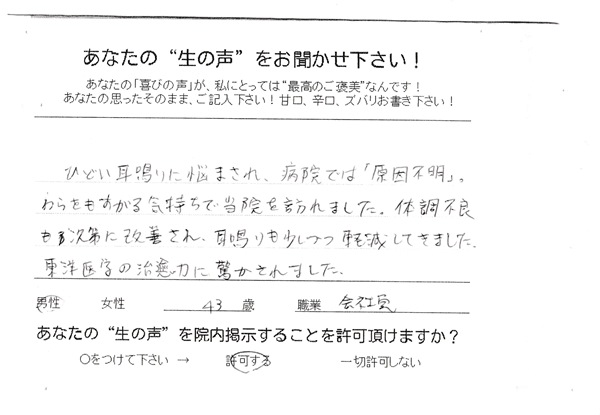 あなたの“生の声”をお聞かせ下さい！
あなたの「喜びの声」が、私にとっては“最高のご褒美”なんです！
あなたの思ったそのまま、ご記入下さい！甘口、辛口、ズバリお書き下さい！
ひどい耳鳴りに悩まされ、病院では「原因不明」。
わらをもすがる気持ちで当院を訪れました。体調不良
も次第に改善され、耳鳴りも少しづつ軽減してきました。
東洋医学の治癒力に驚かされました。
男性 女性 43 歳 職業 会社員
あなたの“生の声”を院内掲示することを許可頂けますか？
○をつけて下さい → 許可する 一切許可しない